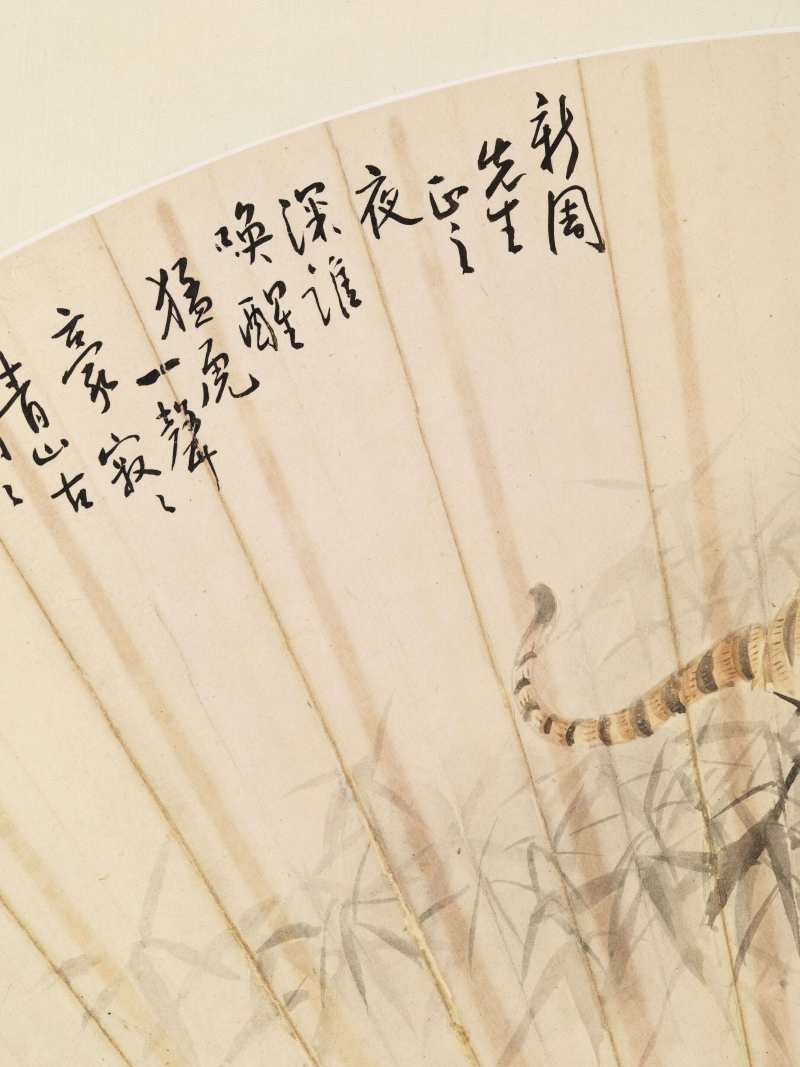 新周
先生
正之
夜
深誰
喚醒
猛虎
一聲
豪寂〻
青山古